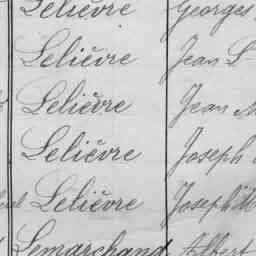 Lelièvre Georges
Lelièvre Jean L
Lelièvre Jean M
Lelièvre Joseph
Lelièvre Joseph M
Lemarchand Albert